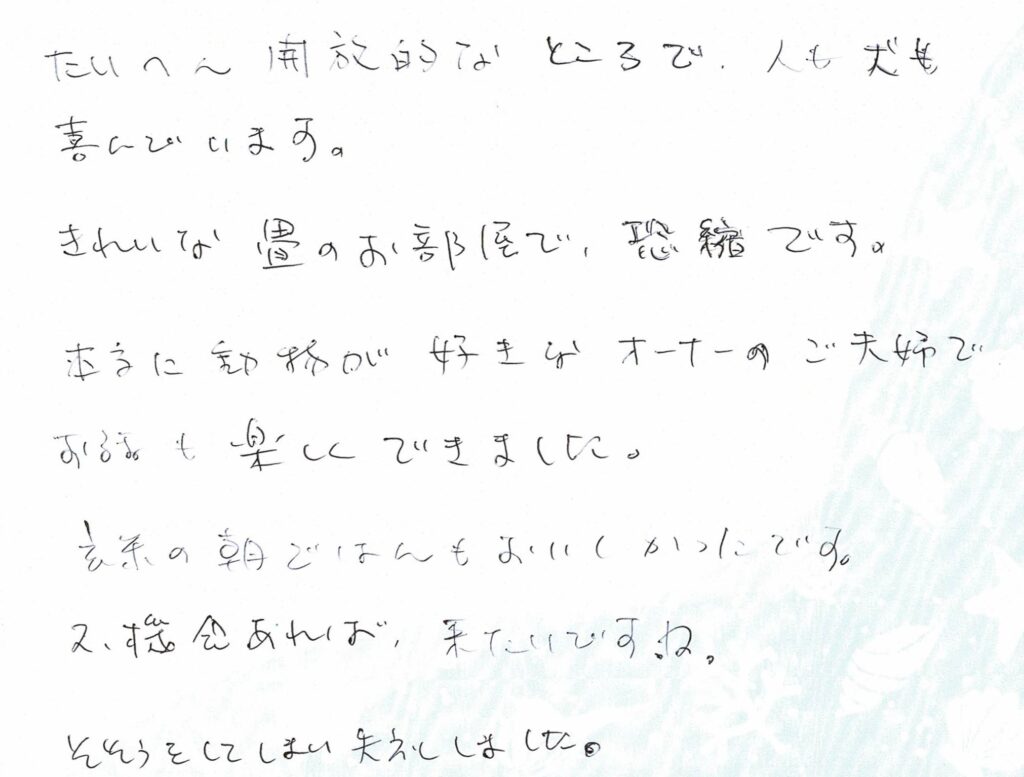 たいへん開放的なところで、人も犬も
喜んでいます。
きれいな畳のお部屋で、恐縮です。
本当に動物が好きなオーナーのご夫婦で
お話も楽しくできました。
玄米の朝ごはんもおいしかったです。
又、機会あれば、来たいですね。
そそうをしてしまい失礼しました。